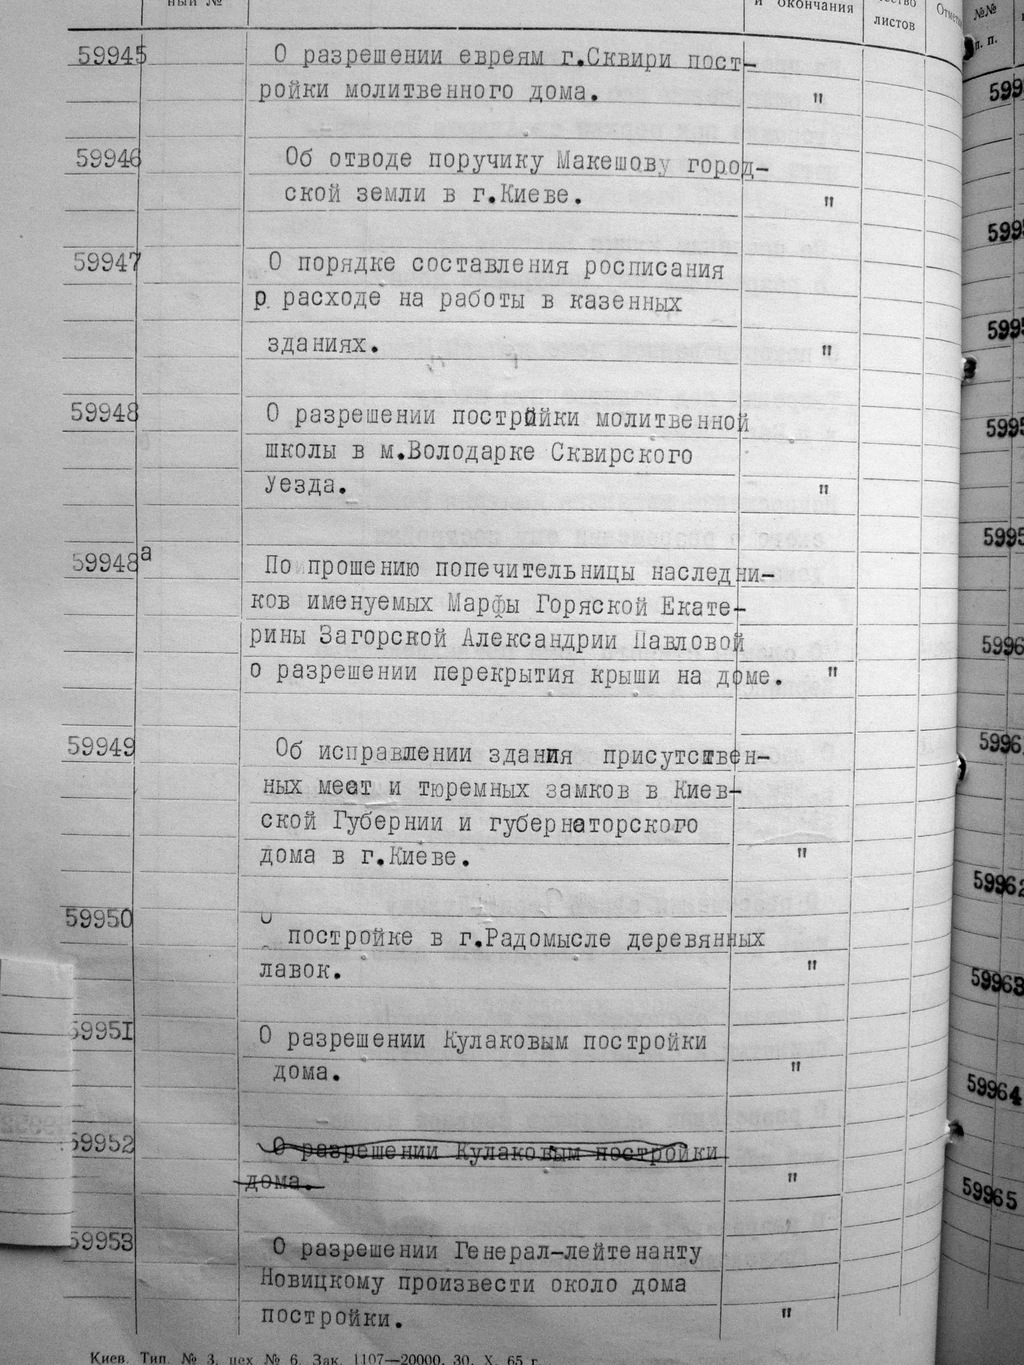 ный №
и окончания
листов
№№
п. п.
59945 О разрешении евреям г.Сквири пост-
ройки молитвенного дома. "
59946 Об отводе поручику Макешову город-
ской земли в г.Киеве. "
59947 О порядке составления росписания
р расходе на работы в казенных
зданиях. "
59948 О разрешении постройки молитвенной
школы в м.Володарке Сквирского
Уезда. "
59948а По прошению попечительницы наследни-
ков именуемых Марфы Горяской Екате-
рины Загорской Александрии Павловой
о разрешении перекрытия крыши на доме. "
59949 Об исправлении здания присутствен-
ных мест и тюремных замков в Киев-
ской Губернии и губернаторского
дома в г.Киеве. "
59950 О постройке в г.Радомысле деревянных
лавок. "
59951 О разрешении Кулаковым постройки
дома. "
59952 О разрешении Кулаковым постройки
дома. "
59953 О разрешении Генерал-лейтенанту
Новицкому произвести около дома
постройки. "
Киев. Тип. № 3, цех № 6. Зак. 1107—20000. 30. X. 65 г.
59962
59963
59964
59965